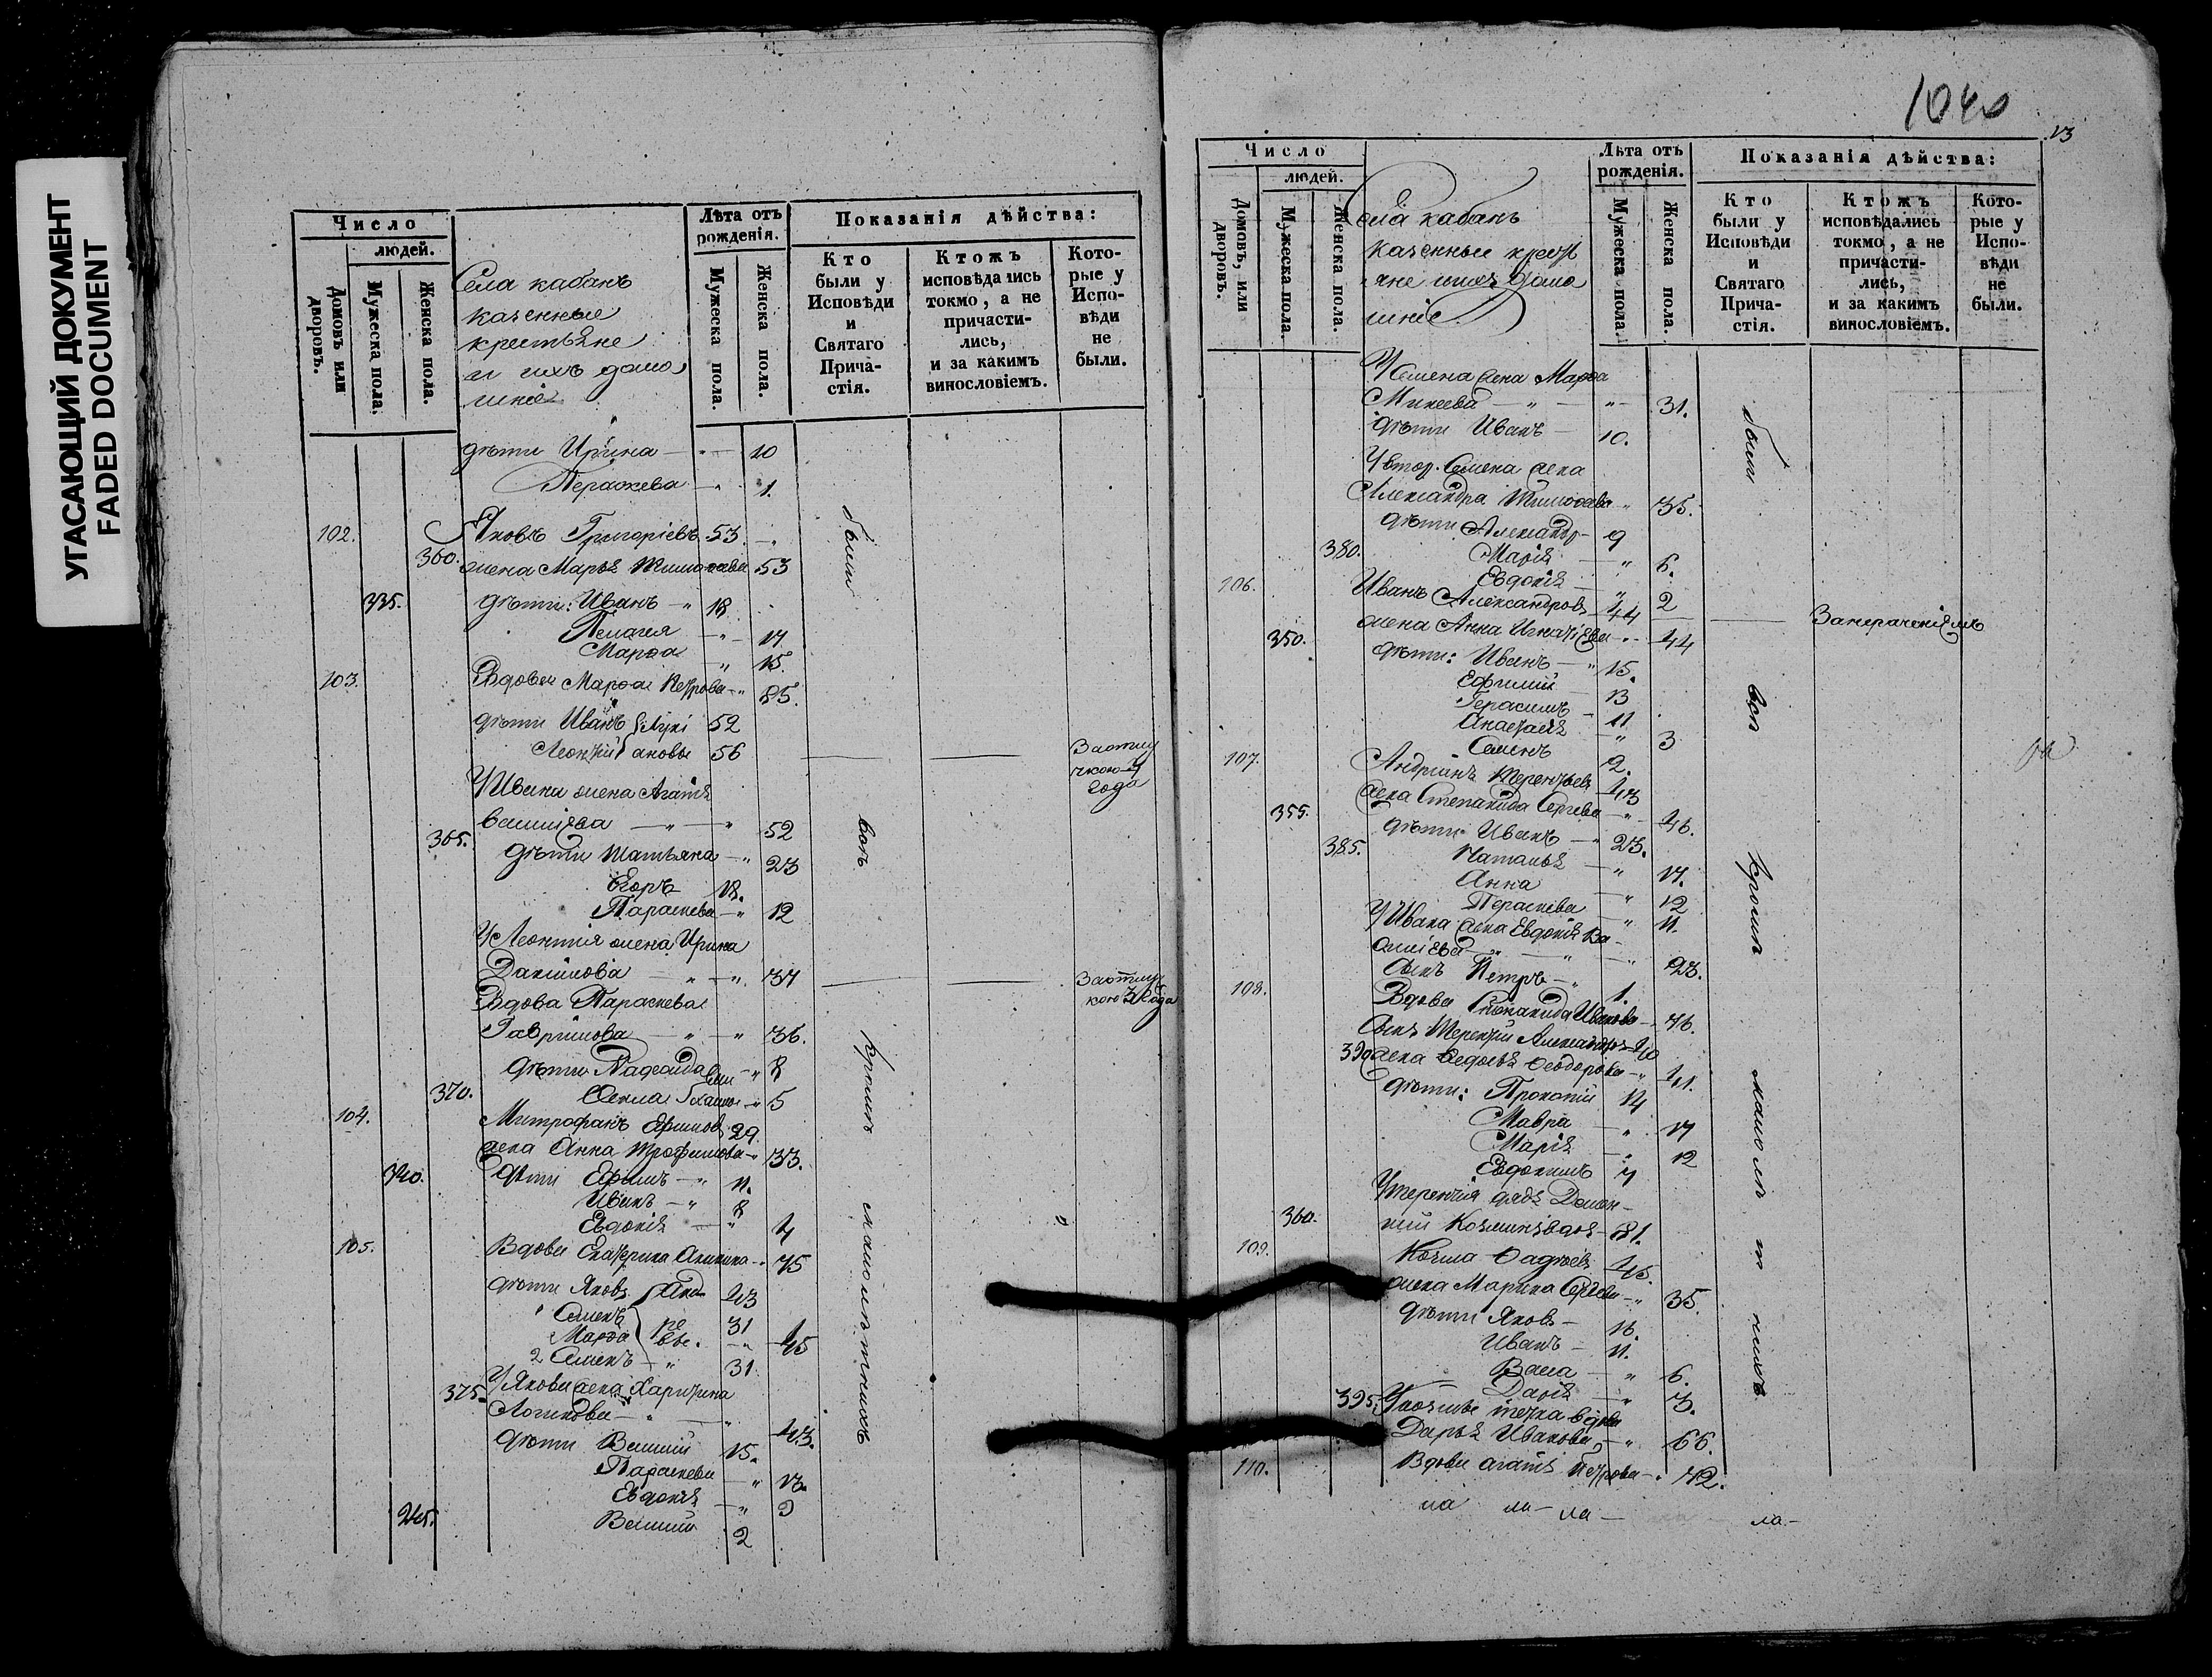 УГАСАЮЩИЙ ДОКУМЕНТ
FADED DOCUMENT
Число
людей.
Домовъ или дворовъ.
Мужеска пола.
Женска пола.
Села кабанъ
казенные
крестьяне
и ихъ дома
шніе
Лѣта отъ рожденія.
Мужеска пола.
Женска пола.
Показанія дѣйства:
Кто были у Исповѣди и Святаго Причастія.
Ктожъ исповѣдались токмо, а не причастились, и за какимъ винословіемъ.
Которые у Исповѣди не были.
дѣти Ирина — " — 10
Параскева — " 1.
102. Яковъ Григоріевъ 53. "
360. жена Марья Тимофеева 53
335. дѣти: Иванъ — " 18
Пелагея — " — 17
Марфа — " 15.
103. Вдова Марфа Петрова — " 85.
дѣти Иванъ 52
Леонтій 56
За отлу
чкою
года
У Ивана жена Агафья
Васильева — " — " 52
365. дѣти Татьяна — " 23
Егоръ 18.
Параскева — " 12
У Леонтія жена Ирина
Данилова — " — " 37
За отлу
кою года
Вдова Параскева
Гаврилова — " — " 36.
дѣти Надежда — " 8
370. Фекла — " 5
104. Митрофанъ Ефимовъ 29
жена Анна Трофимова — " 33.
340. дѣти Ефимъ — " 11.
Иванъ — " 8
Евдокія — " 4
105. Вдова Екатерина Аникина — " 75
дѣти Яковъ 43
Семенъ 31
Марфа — " 45
2 Семенъ — " 31
375. У Якова жена Харитина
Логинова — " — " 43.
дѣти Василій 15.
Параскева — " 13.
Евдокія — " 3
345. Василій 2
были
вси
кромѣ
малолѣтнихъ
1040
13
Число
людей.
Домовъ, или дворовъ.
Мужеска пола.
Женска пола.
Села кабанъ
казенные крест
яне и ихъ дома
шніе.
Лѣта отъ рожденія.
Мужеска пола.
Женска пола.
Показанія дѣйства:
Кто были у Исповѣди и Святаго Причастія.
Ктожъ исповѣдались токмо, а не причастились, и за какимъ винословіемъ.
Которые у Исповѣди не были.
У Семена жена Марфа
Микеева — " — " — 31.
дѣти Иванъ — 10.
У втор. Семена жена
Александра Тимофеева " 35.
дѣти Александръ — 9
380. Марія — " 6.
Евдокія — " 2
106. Иванъ Александровъ 44 — За нераченіемъ
жена Анна Игнатіева — " 44
350. дѣти: Иванъ — " 15.
Ефимій 13
Герасимъ — 11
Анастасія — " 3
Семенъ 2.
107. Андріянъ Терентьевъ 43
жена Степанида Сергѣева — " 46.
355. дѣти Иванъ — " 23.
385. Наталья — " 17.
Анна — " 12
Параскева — " 11.
У Ивана жена Евдокія Ва-
сильева — " — " — 23.
сынъ Петръ — " 1.
108. Вдова Степанида Иванова — 76.
сынъ Терентій Александровъ 40
390. жена Федосья Феодорова — " 41.
дѣти: Прокопій 14
Мавра — " 17
Марія — " 12
Евдокимъ 7
У Терентія дядя Демен-
360. тій — 81.
109. Козма Фадѣевъ 45.
жена Марина Сергѣева — " 35.
дѣти Яковъ — 16.
Иванъ — 11.
Васса — " 6.
Дарія — " 3.
395. У Козмы тетка вдова
Дарья Иванова, — " 66.
110. Вдова Агафья Петрова — " 72.
были
вси
кромѣ
малолѣтнихъ